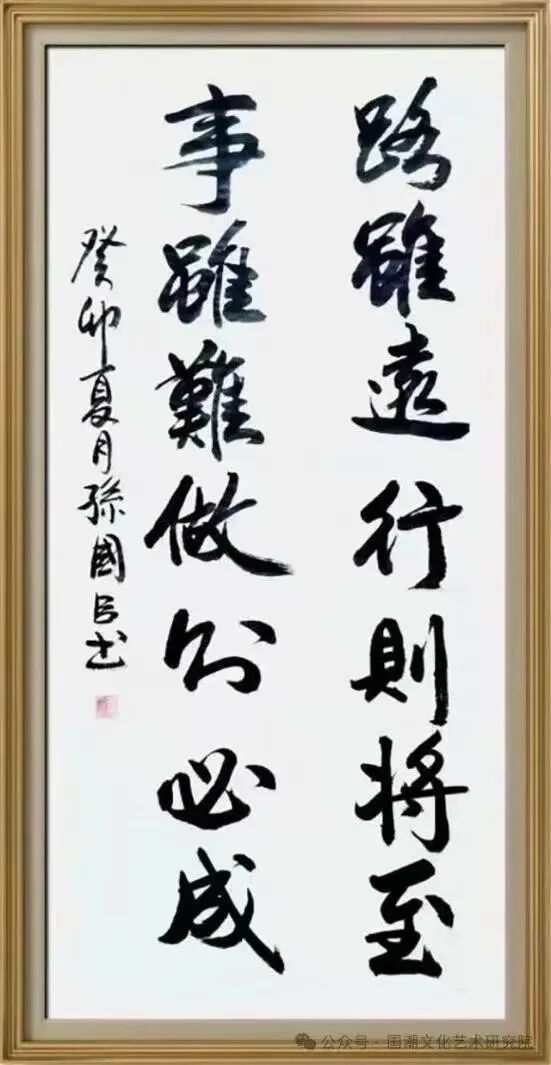 路雖遠行則將至
事雖難做則必成
癸卯夏月孫國臣书
公众号 · 国潮文化艺术研究院